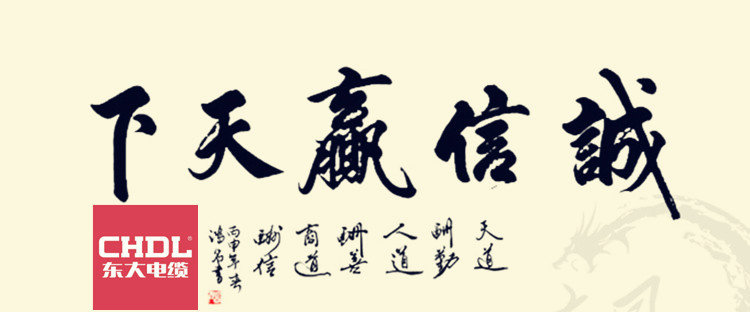 誠信贏天下
天道
酬勤
人道
酬善
商道
酬信
丙申年春
鴻名書
CHDL
东大电缆